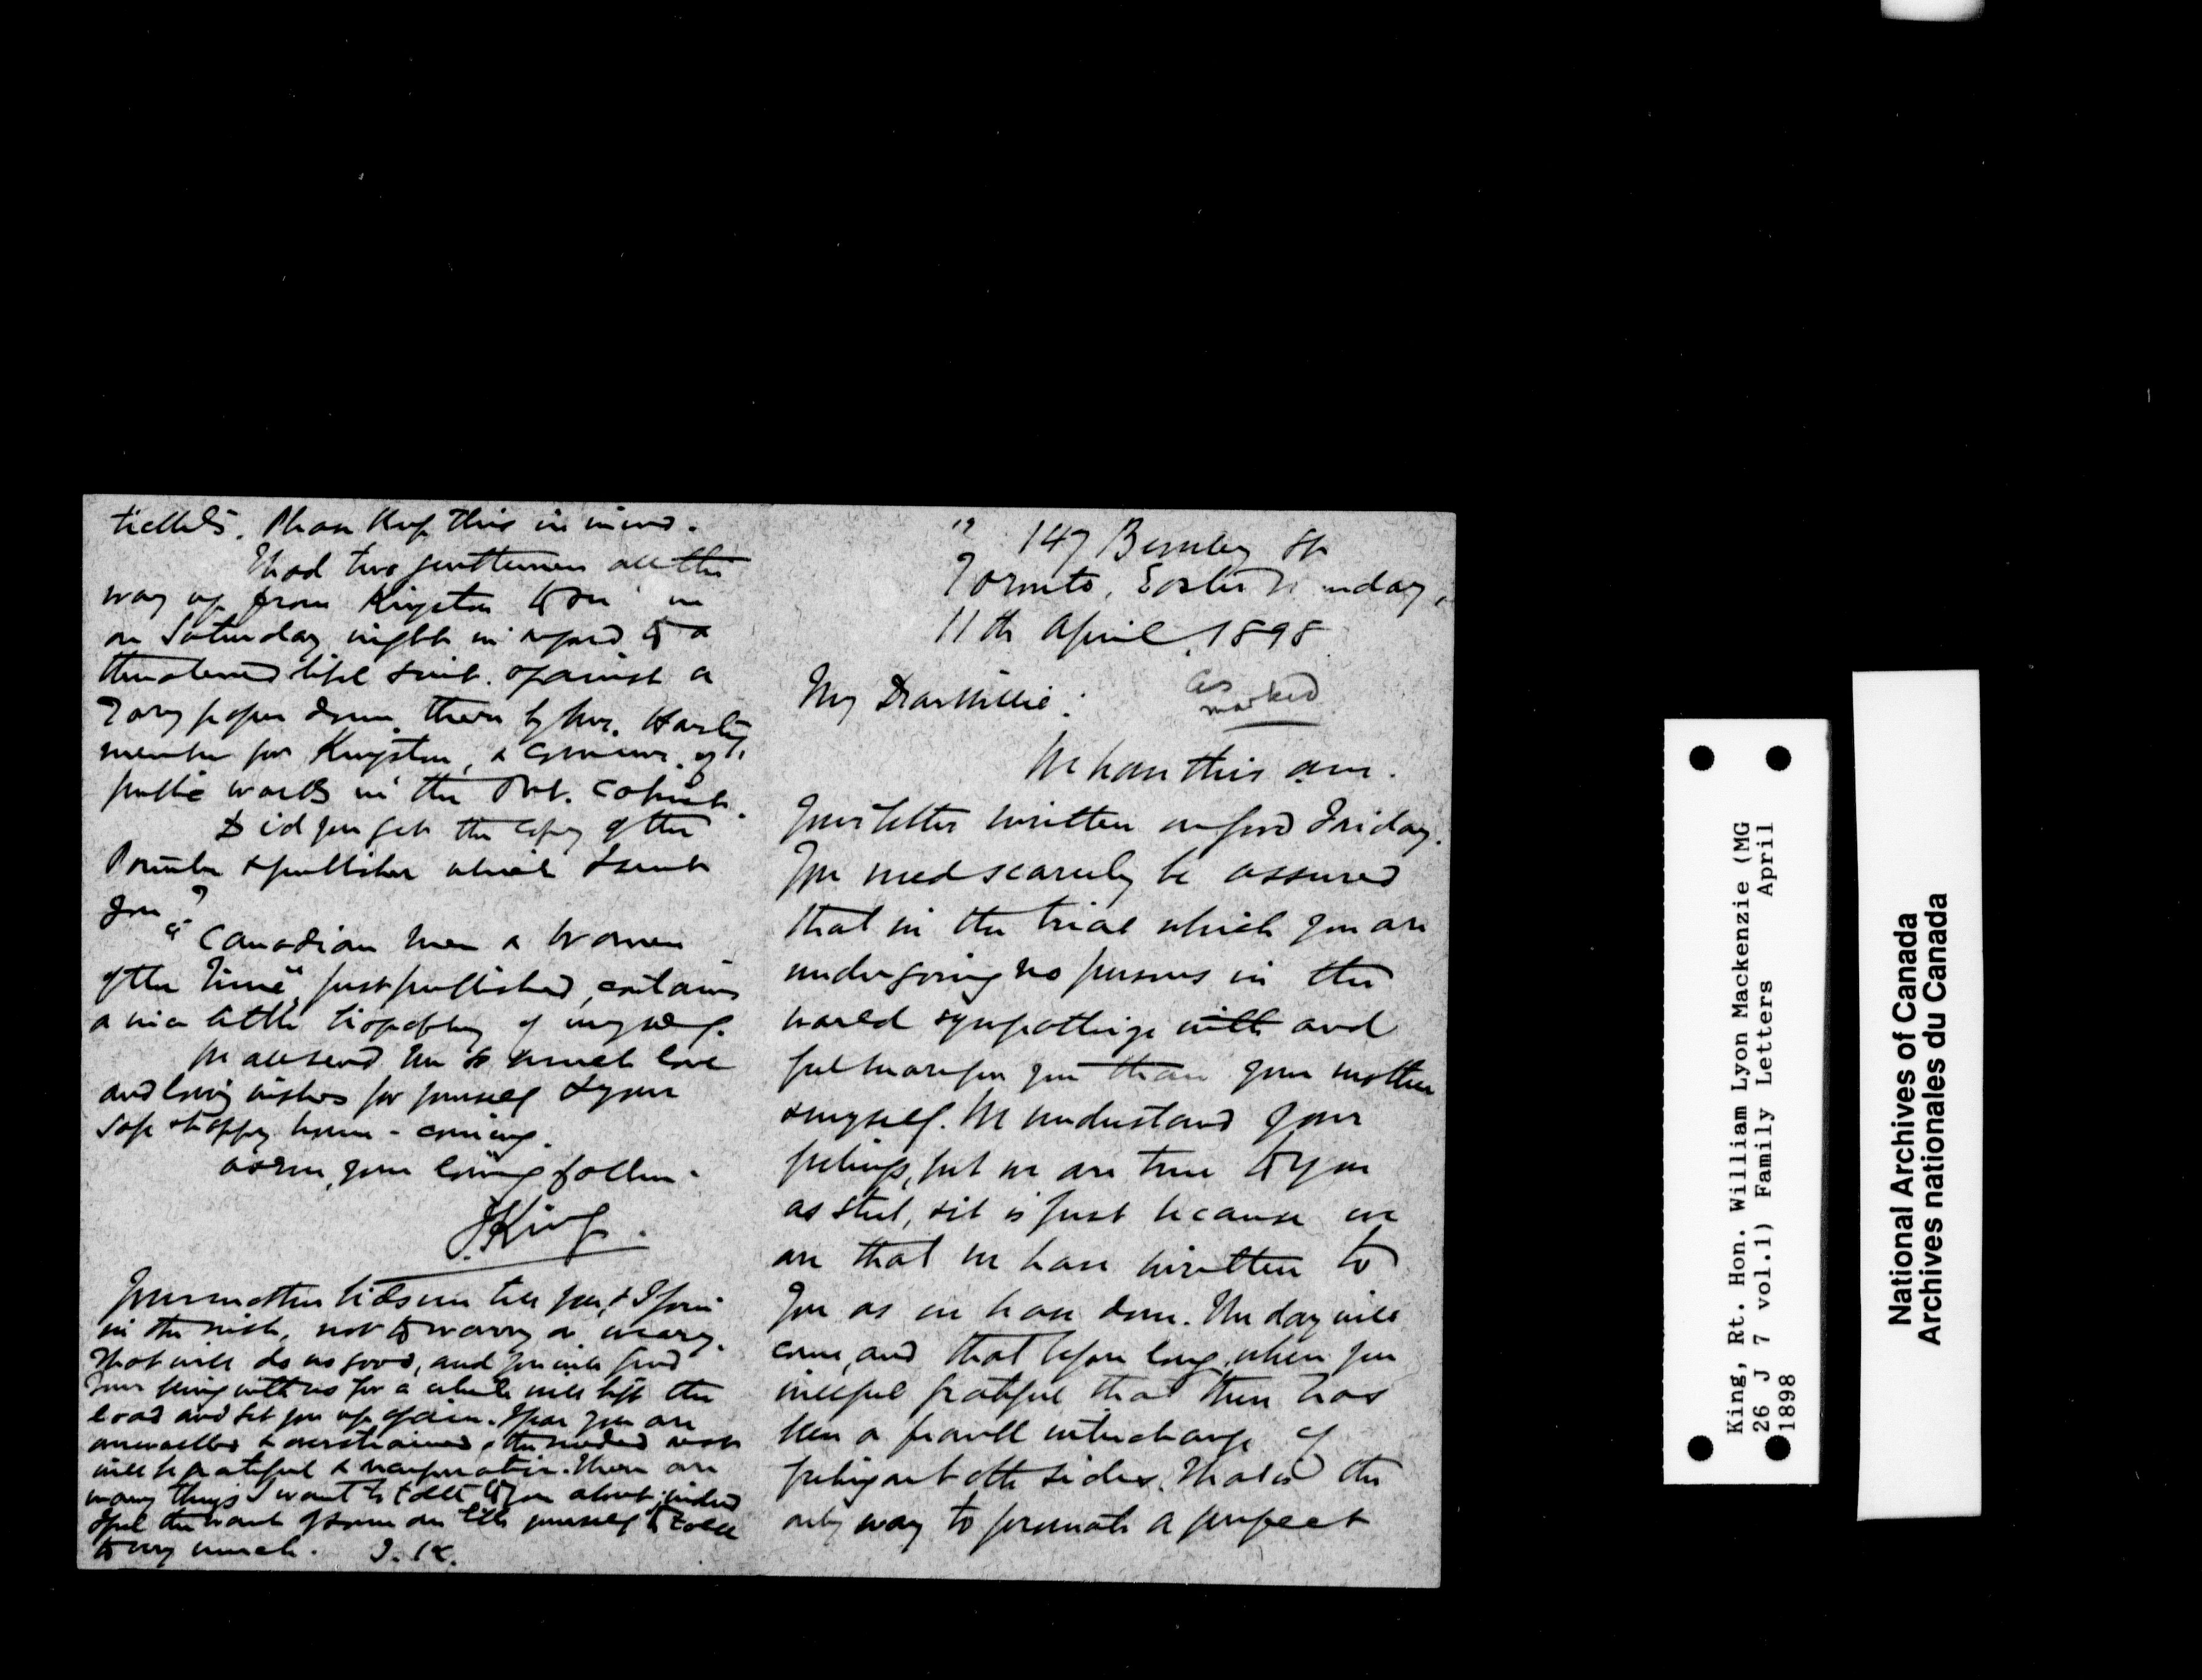 tickets. Please keep this in mind.
I had two gentlemen all the
way up from Kingston to see me
on Saturday night in regard to a
threatened libel suit against a
Tory paper down there by Mr. Harty
member for Kingston, & Commr. of
public works in the Ont. Cabinet.
Did you get the copy of the
& publisher which I sent
you?
"Canadian Men & Women
of the Time", just published, contains
a nice little biography of myself.
We all send you so much love
and loving wishes for yourself & your
safe & happy home-coming.
as ever, your loving father.
J. King.
Your mother bids me tell you, & I join
in the wish, not to worry or weary.
That will do no good, and you will find
your being with us for a while will lift the
load and set you up again. I fear you are
overworked & overstrained, & the needed rest
will be grateful & recuperative. There are
many things I want to talk to you about; indeed
I feel the want of some one like yourself to talk
to very much. J. K.
147 Beverley St
Toronto, Easter Monday,
11th April, 1898
My Dear Willie:
as
marked
We have this a.m.
your letter written on Good Friday.
You need scarcely be assured
that in the trial which you are
undergoing no persons in the
world sympathize with and
feel more for you than your mother
& myself. We understand your
feelings, but we are true to you
as steel, & it is just because we
are that we have written to
you as we have done. The day will
come, and that before long, when you
will feel grateful that there has
been a frank interchange of
feeling on both sides. That is the
only way to promote a perfect
King, Rt. Hon. William Lyon Mackenzie (MG
26 J 7 vol.1) Family Letters April
1898
National Archives of Canada
Archives nationales du Canada